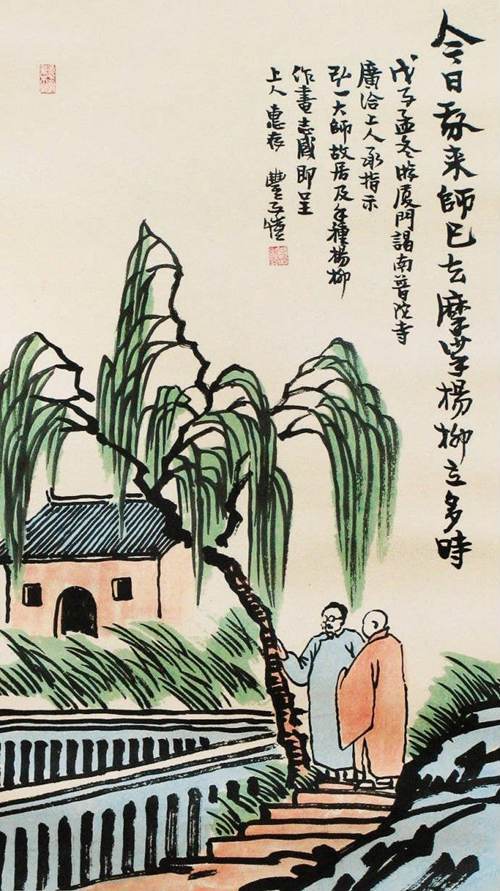 今日我来師已去摩挲楊柳立多時
戊子孟冬游厦門謁南普陀寺
廣洽上人承指示
弘一大師故居及手種楊柳
作畫志感即呈
上人惠存 豐子愷